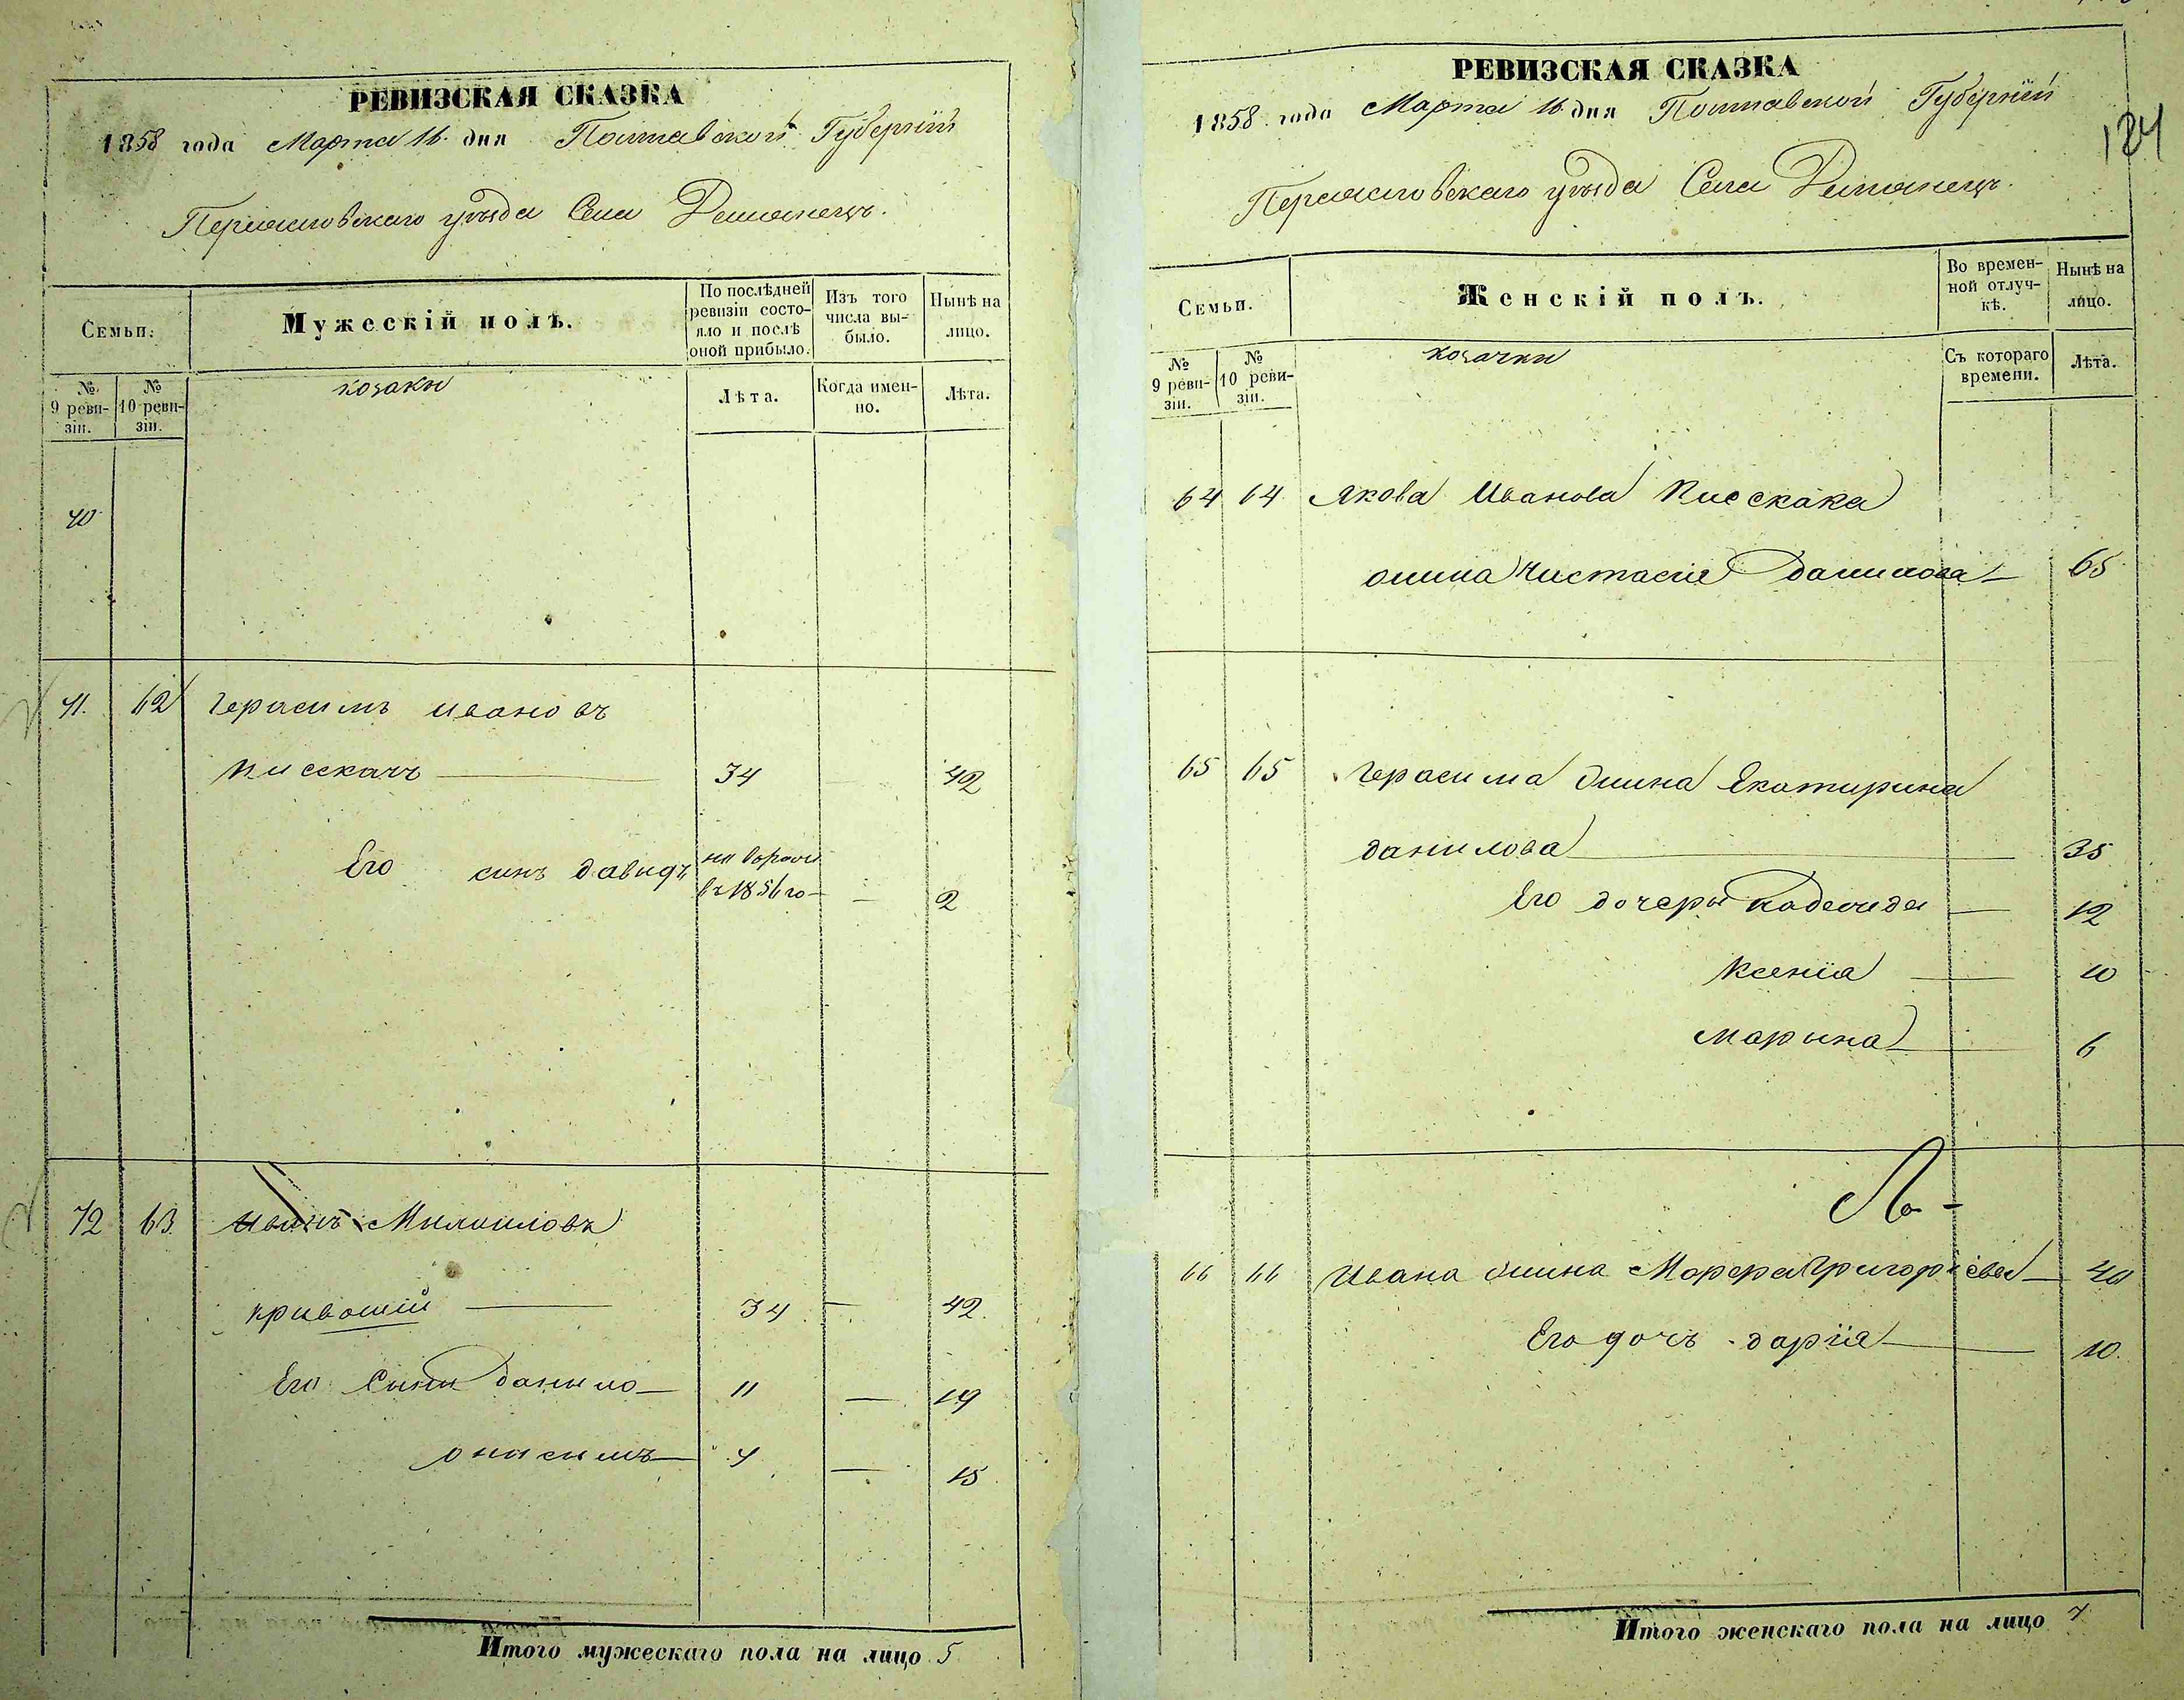 РЕВИЗСКАЯ СКАЗКА
1858 года Марта 16 дня Полтавской Губерніи
Переяславскаго уѣзда Села Демянецъ.
Семьи.
Мужескій полъ.
По послѣдней ревизіи состояло и послѣ оной прибыло.
Изъ того числа выбыло.
Нынѣ на лицо.
№ 9 ревизіи.
№ 10 ревизіи.
козаки
Лѣта.
Когда именно.
Лѣта.
40
41. 62 Герасимъ ивановъ
кисскачъ 34 42
Его синъ давидъ
в 1856 го 2
42 63 Иванъ Михаиловъ
кривошій 34 42.
Его Сини данило 11 19
онисимъ 7 15
Итого мужескаго пола на лицо 5
РЕВИЗСКАЯ СКАЗКА
1858 года Марта 16 дня Полтавской Губерніи
184
Переяславскаго уѣзда Села Демянецъ.
Семьи.
Женскій полъ.
Во временной отлучкѣ.
Нынѣ на лицо.
№ 9 ревизіи.
№ 10 ревизіи.
козачки
Съ котораго времени.
Лѣта.
64 64 Якова Иванова Кисскака
данилова 65
65 65 Герасима жина Екатирина
данилова 35
Его дочеры 12
Ксенія 10
Марына 6
66 66 Ивана жина Марфа Григоріева 40
Его дочъ дарія 10.
Итого женскаго пола на лицо 7